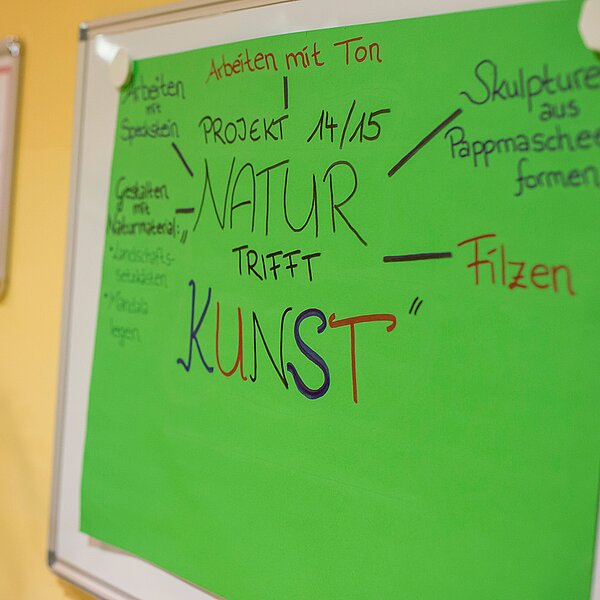 Arbeiten mit Ton
Arbeiten
mit
Speckstein
PROJEKT 14/15
Skulpture
aus
Pappmaschee
formen
Gestalten
mit
Naturmaterial:
*Landschafts-
setzkästen
*Mandala
legen
„NATUR
TRIFFT
KUNST"
Filzen